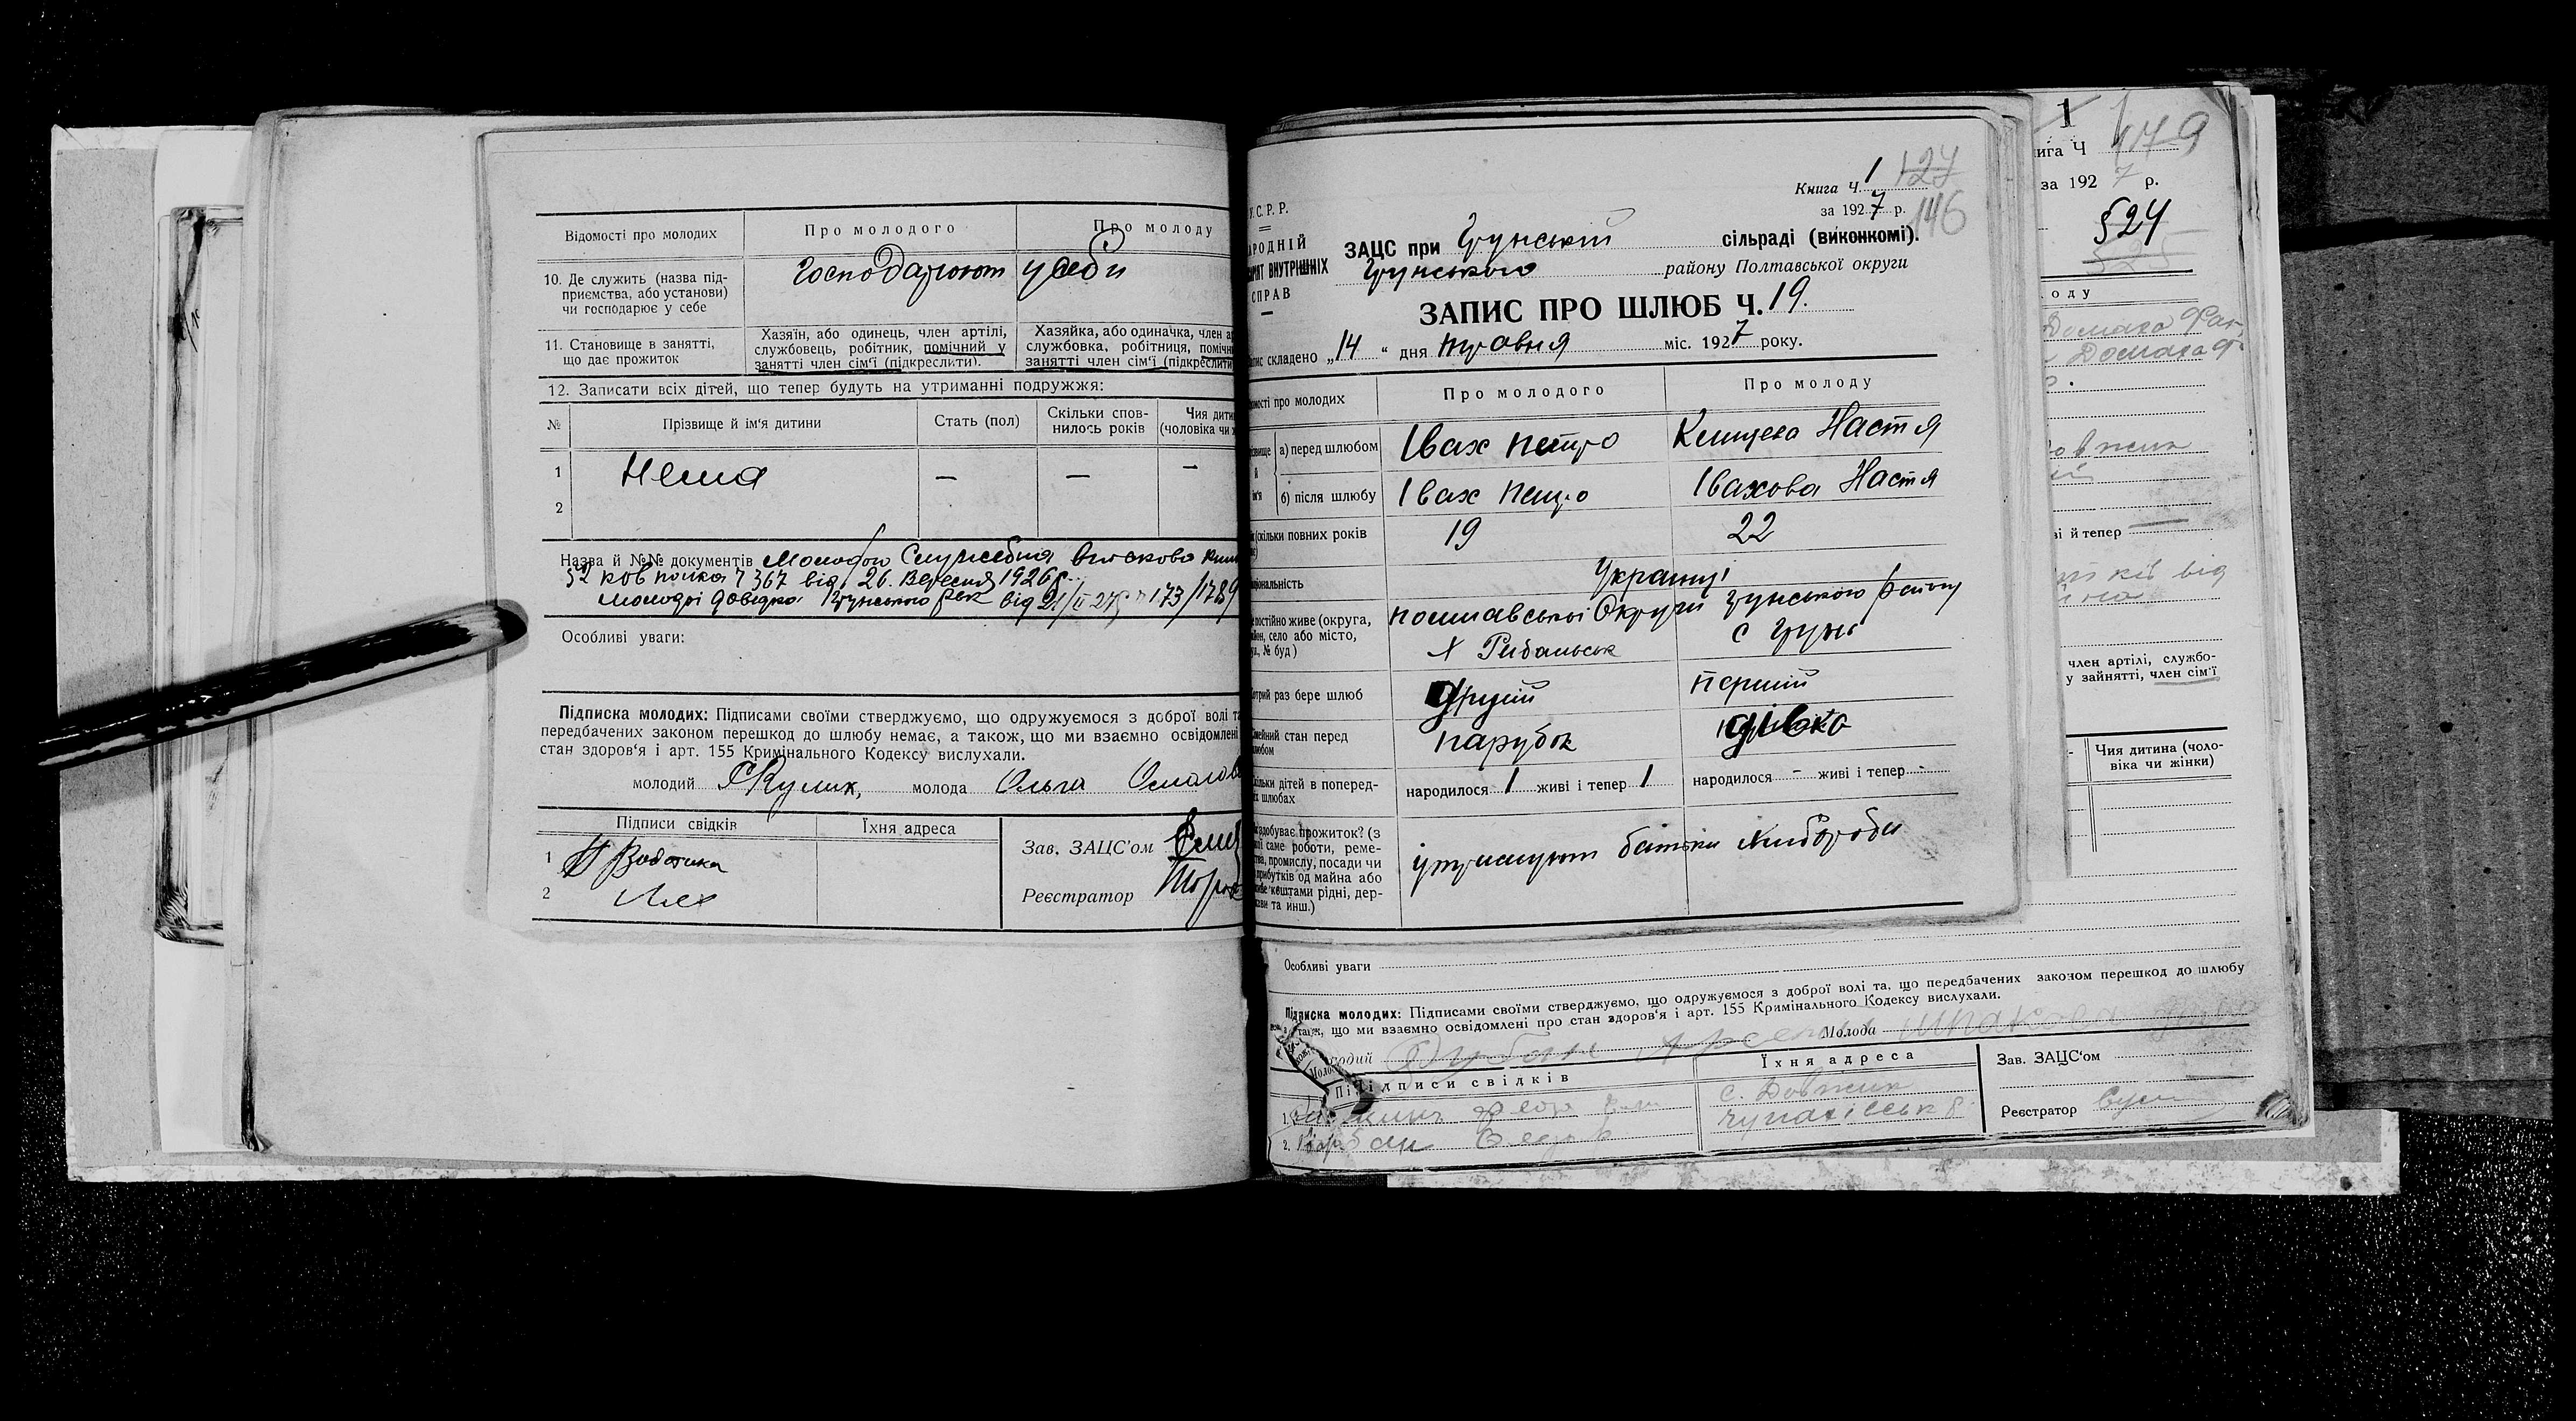 Відомості про молодих
Про молодого
Про молоду
10. Де служить (назва під-
приємства, або установи)
чи господарює у себе
Господарюют у себи
11. Становище в занятті,
що дає прожиток
Хазяїн, або одинець, член артілі,
службовець, робітник, помічний у
занятті член сім'ї (підкреслити).
Хазяйка, або одиначка, член а
службовка, робітниця, помічн
занятті член сім'ї (підкреслити
12. Записати всіх дітей, що тепер будуть на утриманні подружжя:
№
Прізвище й ім'я дитини
Стать (пол)
Скільки спов-
нилось років
Чия дити
(чоловіка чи ж
1 Нема — — —
2
Назва й №№ документів Молодого Служебна
52 кав полка 7367 від 26. Вересня 1926р.
Молодої довідка Грунського РВК від 21/II 27р 173/1789
Особливі уваги:
Підписка молодих: Підписами своїми стверджуємо, що одружуємося з доброї волі та
передбачених законом перешкод до шлюбу немає, а також, що ми взаємно освідомлені
стан здоров'я і арт. 155 Кримінального Кодексу вислухали.
молодий Кулик, молода Ольга
Підписи свідків
Їхня адреса
1
2
Зав. ЗАЦС'ом
Реєстратор
Книга Ч. 1 127
за 1927 р. 146
У.С.Р.Р.
АРОДНІЙ
РІЯТ ВНУТРІШНІХ
СПРАВ
ЗАЦС при Грунській сільраді (виконкомі).
Грунського району Полтавської округи
ЗАПИС ПРО ШЛЮБ Ч. 19.
пис складено „14“ дня травня міс. 1927 року.
омості про молодих
Про молодого
Про молоду
звище
й
ім'я
а) перед шлюбом
Івах Петро
Клищева Настя
б) після шлюбу
Івах Петро
Івахова Настя
(скільки повних років
19
22
ціональність
Українці
постійно живе (округа,
йон, село або місто,
л., № буд)
Полтавської Округи Грунського району
х Рибальськ
с Грунь
отрий раз бере шлюб
другий
перший
мейний стан перед
любом
парубок
дівка
кільки дітей в поперед-
х шлюбах
народилося 1 живі і тепер 1
народилося - живі і тепер -
здобуває прожиток? (з
ої саме роботи, реме-
тва, промислу, посади чи
прибутків од майна або
иве коштами рідні, дер-
жави та инш.)
утримують батьки хлібороби
1
ига Ч 179
за 1927 р.
§24
оду
Домаха
Домаха
ві й тепер
ків від
член артілі, службо-
у зайнятті, член сім'ї
Чия дитина (чоло-
віка чи жінки)
Особливі уваги
Підписка молодих: Підписами своїми стверджуємо, що одружуємося з доброї волі та, що передбачених законом перешкод до шлюбу
також, що ми взаємно освідомлені про стан здоров'я і арт. 155 Кримінального Кодексу вислухали.
одий
Молода
Підписи свідків
Їхня адреса
Зав. ЗАЦС'ом
1.
с. Довжик
2.
Реєстратор